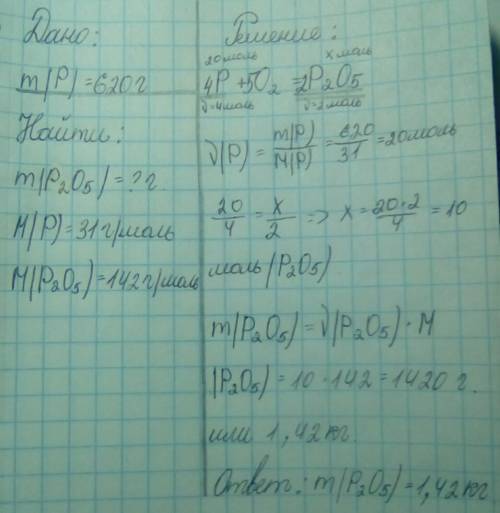 Дано:
m(P)=620г
Найти:
m(P₂O₅)=?г.
M(P)=31г/моль
M(P₂O₅)=142г/моль
Решение:
20моль x моль
4P+5O₂=2P₂O₅
ν=4моль ν=2моль
ν(P)=m(P)/M(P)=620/31=20моль
20/4=x/2=>x=20·2/4=10
моль(P₂O₅)
m(P₂O₅)=ν(P₂O₅)·M
(P₂O₅)=10·142=1420 г.
или 1,42кг.
Ответ: m(P₂O₅)=1,42кг